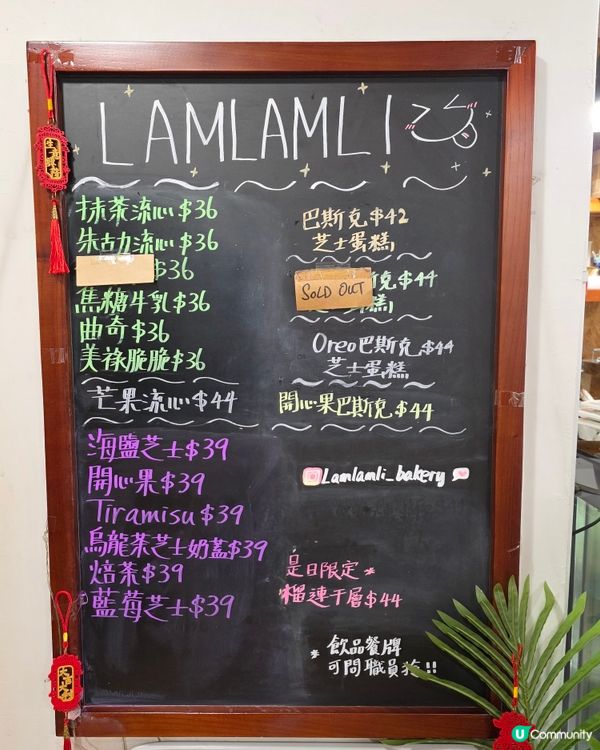 LAMLAMLI
抹茶流心 $36
朱古力流心 $36
$36
焦糖牛乳 $36
曲奇 $36
美祿脆脆 $36
芒果流心 $44
海鹽芝士 $39
開心果 $39
Tiramisu $39
烏龍茶芝士奶蓋 $39
焙茶 $39
藍莓芝士 $39
巴斯克 $42
芝士蛋糕
SOLD OUT
克 $44
蛋糕
Oreo巴斯克 $44
芝士蛋糕
開心果巴斯克 $44
Lamlamli_bakery
是日限定*
榴連千層 $44
* 飲品餐牌
可問職員拎!!
U Community